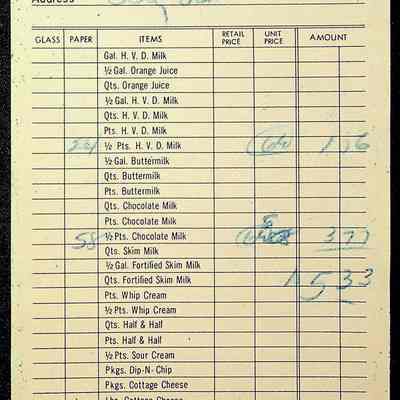 Address
GLASS PAPER ITEMS RETAIL PRICE UNIT PRICE AMOUNT
Gal. H. V. D. Milk
½ Gal. Orange Juice
Qts. Orange Juice
½ Gal. H. V. D. Milk
Qts. H. V. D. Milk
Pts. H. V. D. Milk
½ Pts. H. V. D. Milk
½ Gal. Buttermilk
Qts. Buttermilk
Pts. Buttermilk
Qts. Chocolate Milk
Pts. Chocolate Milk
58 ½ Pts. Chocolate Milk 377
Qts. Skim Milk
½ Gal. Fortified Skim Milk
Qts. Fortified Skim Milk 533
Pts. Whip Cream
½ Pts. Whip Cream
Qts. Half & Half
Pts. Half & Half
½ Pts. Sour Cream
Pkgs. Dip-N-Chip
Pkgs. Cottage Cheese
Lbs. Cottage Cheese